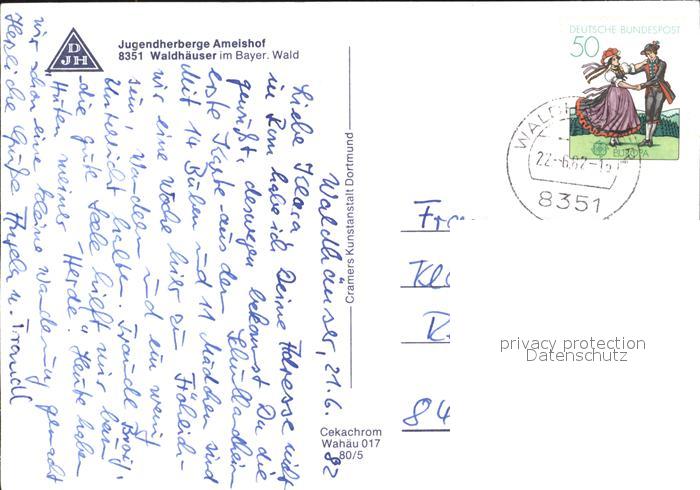 DJH
Jugendherberge Ameishof
8351 Waldhäuser im Bayer. Wald
Waldhäuser, 21.6.82
Liebe Klara
in Rom habe ich Deine Adresse nicht
gewußt, deswegen bekommst Du die
erste Karte aus dem Schullandheim
Mit 14 Buben und 11 Mädchen sind
wir eine Woche hier zu Fröhlich-
sein, Wandern und ein wenig
Unterricht halten. Traudl
die gute Seele hilft mir beim
"Hüten meiner "Herde." Heute haben
wir schon eine kleine Wanderung gemacht
Herzliche Grüße u. Traudl
Cramers Kunstanstalt Dortmund
Cekachrom
Wahäu 017
80/5
DEUTSCHE BUNDESPOST
50
EUROPA
22.-6.82-
8351
84
privacy protection
Datenschutz